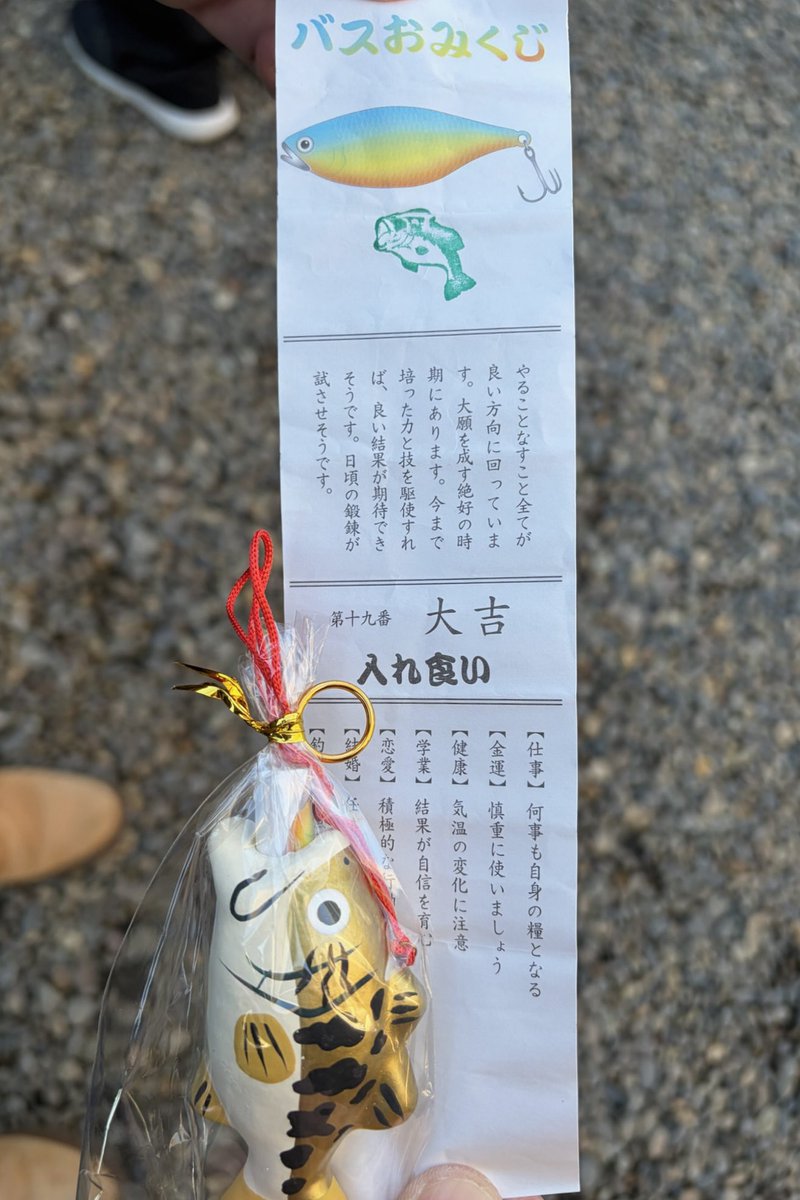 バスおみくじ
やることなすこと全てが
良い方向に回っていま
す。大願を成す絶好の時
期にあります。今まで
培った力と技を駆使すれ
ば、良い結果が期待でき
そうです。日頃の鍛錬が
試させそうです。
第十九番 大吉
入れ食い
【仕事】何事も自身の糧となる
【金運】慎重に使いましょう
【健康】気温の変化に注意
【学業】結果が自信を育む
【恋愛】積極的な
【結婚】任
【釣